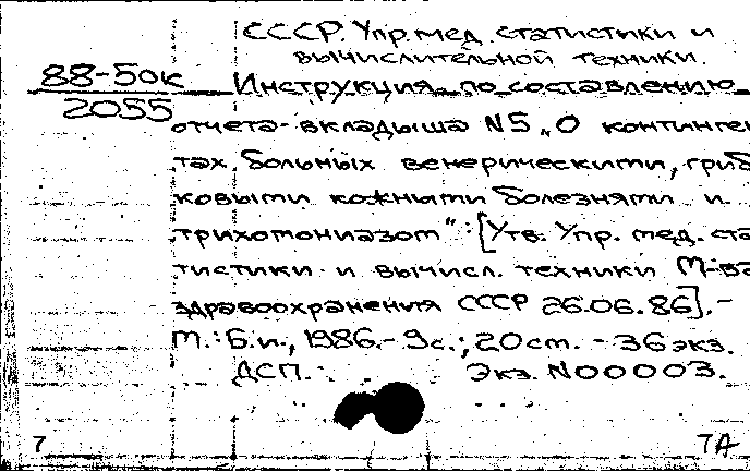 СССР. Упр. мед. статистики и
вычислительной техники.
88-5ок
Инструкция по составлению
2055
отчета-вкладыша N5 „О континген
тах больных венерическими, гриб
ковыми кожными болезнями и
трихомониазом": [Утв. Упр. мед. ста
тистики и вычисл. техники М-ва
здравоохранения СССР 26.06.86].-
М.: Б.и., 1986.- 9с.; 20см. - 36экз.
ДСП.
Экз. N00003.
7
7А